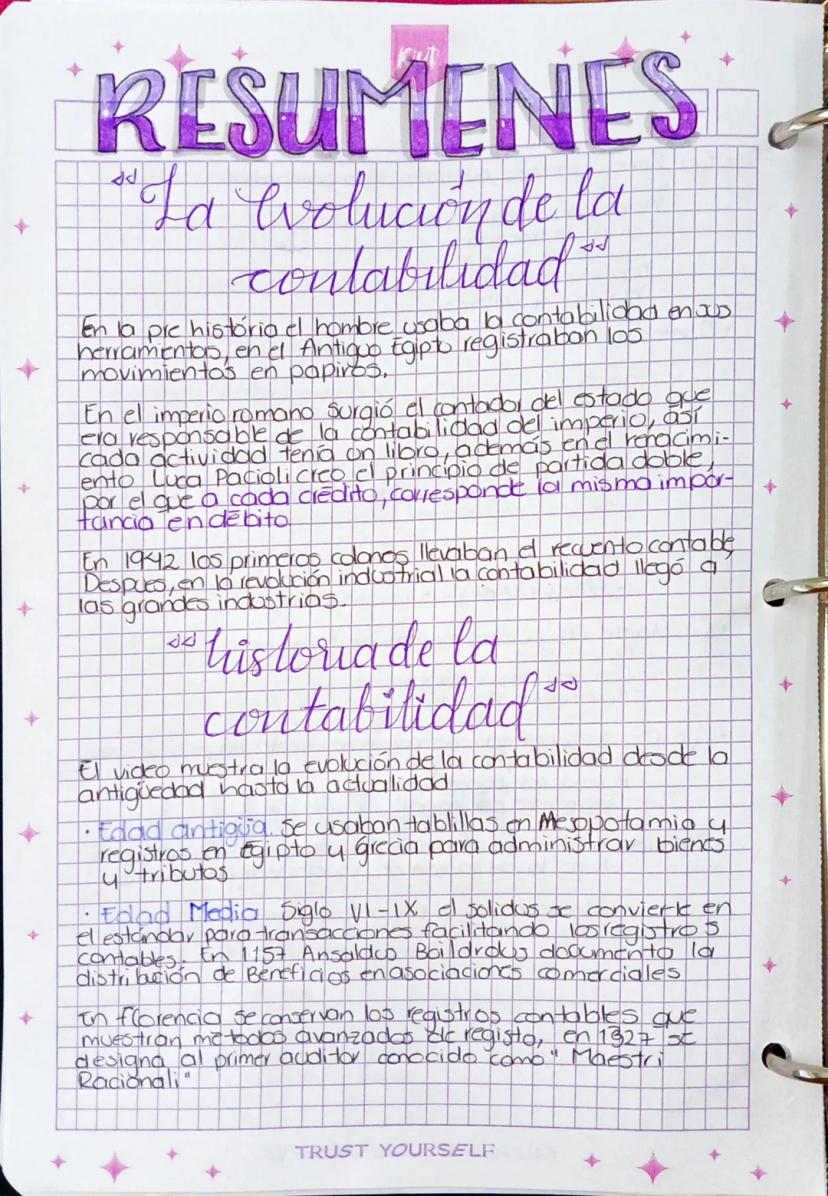 RESUMENES
"La Evolución de la
contabilidad"
En la pre história el hombre usaba la contabilidad en sus
herramientas, en el Antiguo Egipto registraban los
movimientos en papiros.
En el imperio romano surgió el contador del estado que
era responsable de la contabilidad del imperio, así
cada actividad tenía un libro, además en el renacimi-
ento Luca Pacioli creo el principio de partida doble,
por el que a cada crédito, corresponde la misma impor-
tancia en débito
En 1942 los primeros colonos llevaban el recuento contable,
Despues, en la revolución industrial la contabilidad llegó a
las grandes industrias.
"historia de la
contabilidad"
El video muestra la evolución de la contabilidad desde la
antigüedad hasta la actualidad
· Edad antigüa. Se usaban tablillas en Mesopotamia y
registros en Egipto y Grecia para administrar bienes
y tributos
· Edad Media Siglo VI-IX el solidus se convierte en
el estándar para transacciones facilitando los registros
contables. En 1157 Ansaldus documento la
distribución de Beneficios en asociaciones comerciales
En florencia se conservan los registros contables que
muestran metodos avanzados de registo, en 1327 se
designa al primer auditor conocido como "Maestri
Racionali"
TRUST YOURSELF